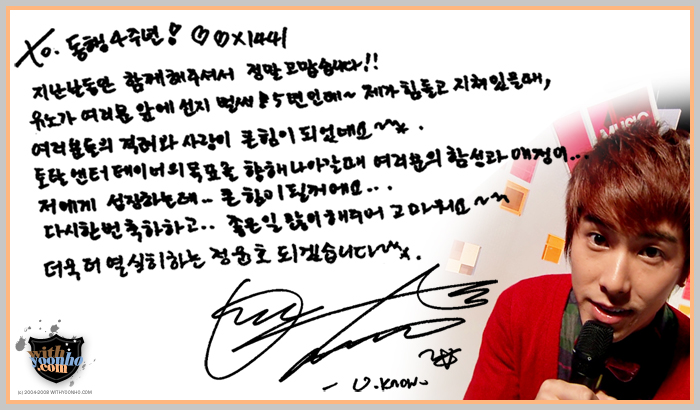 to. 동행4주년! ♡♡×1441
지난날동안 함께해주셔서 정말고맙습니다!!
유노가 여러분 앞에 선지 벌써 5년인데~ 제가힘들고 지쳐있을때,
여러분들의 격려와 사랑이 큰힘이 되었네요~
토탈엔터테이너의목표를 향해나아갈때 여러분의 함성과 애정이...
저에게 성장하는데.. 큰힘이될꺼에요...
다시한번축하하고.. 좋은일 많이해주어 고마워요~
더욱더 열심히하는 정윤호 되겠습니다~
- U.Know-
MUSIC
with
yoonho
.com
(c) 2004-2008 WITHYOONHO.COM